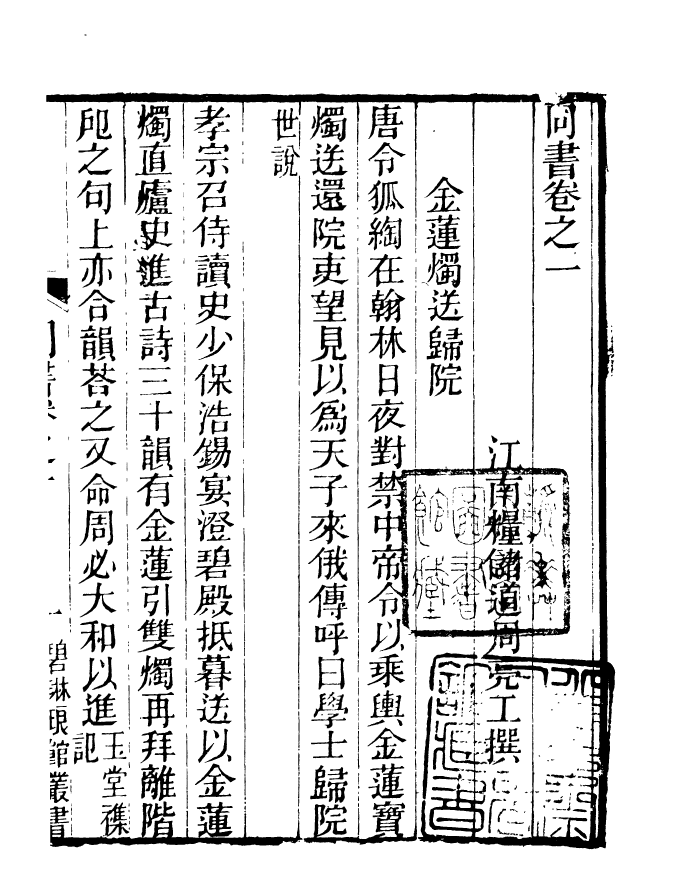 同書卷之一
江南糧儲道周亮工撰
金蓮燭送歸院
唐令狐綯在翰林日夜對禁中帝令以乘輿金蓮寶
燭送還院吏望見以爲天子來俄傳呼曰學士歸院
世說
孝宗召侍讀史少保浩錫宴澄碧殿抵暮送以金蓮
燭直廬史進古詩三十韻有金蓮引雙燭再拜離階
戺之句上亦合韻荅之又命周必大和以進玉堂襍
記
同書卷之一
一
碧琳琅館叢書